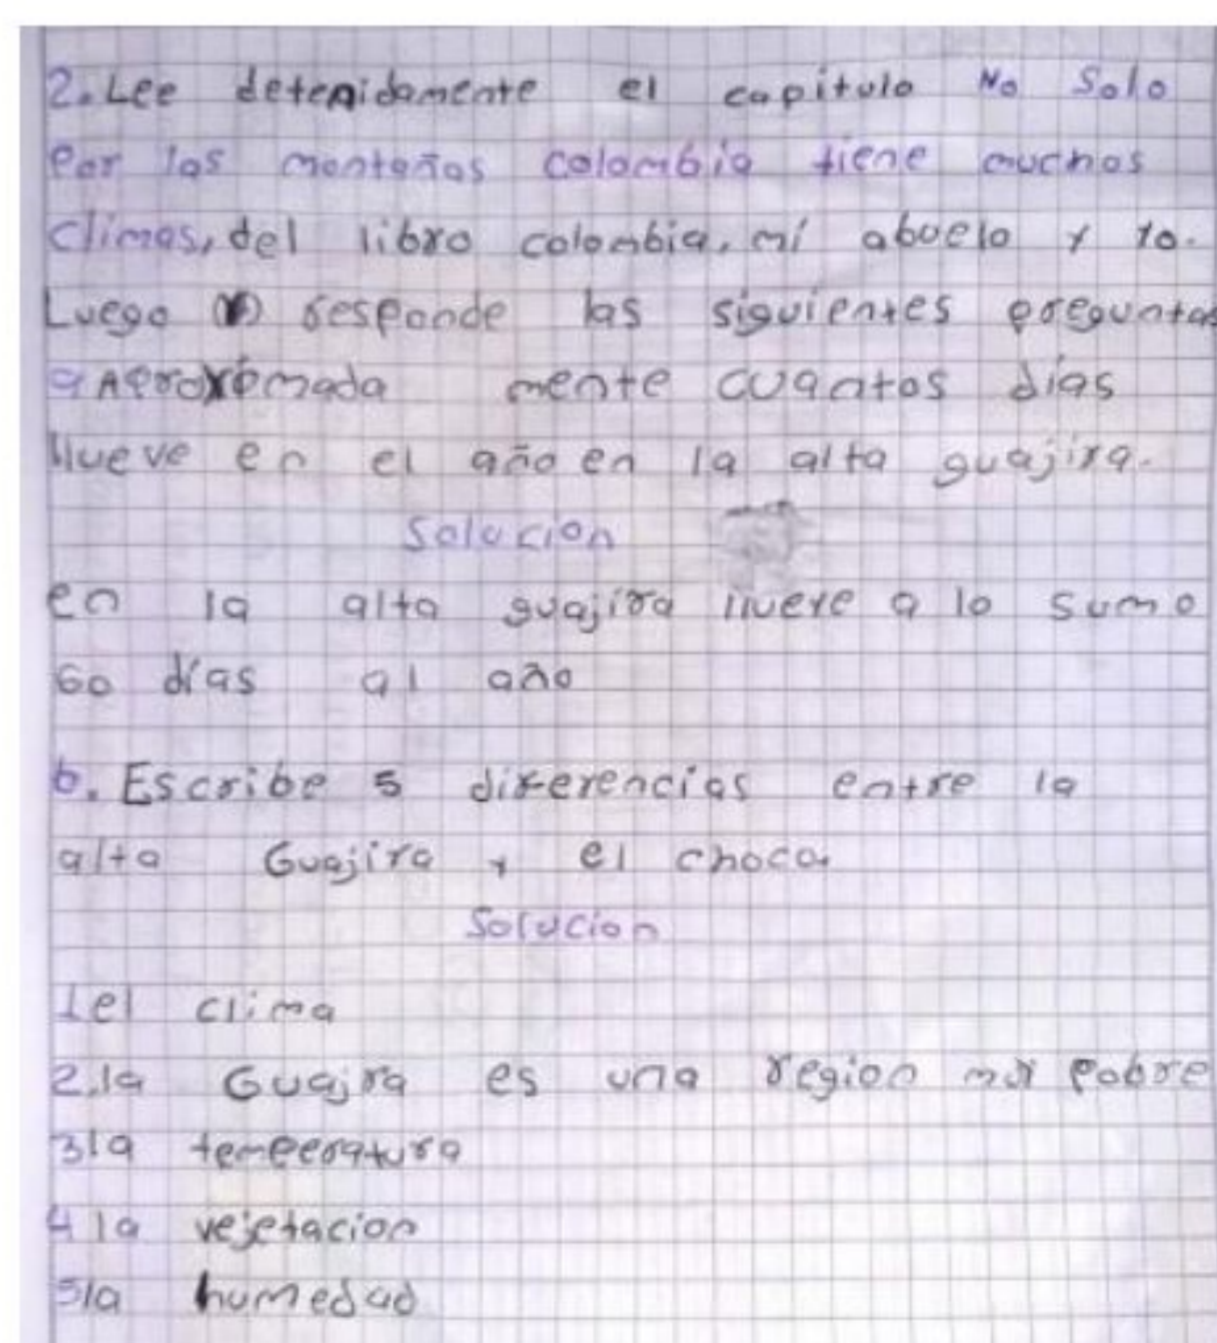 2. Lee detenidamente el capitulo No Solo
Por las montañas colombia tiene muchos
climas, del libro colombia, mi abuelo y yo.
Luego responde las siguientes preguntas
a Aproximada mente cuantos días
llueve en el año en la alta guajira.
Solucion
en la alta guajira llueve a lo sumo
60 días al año
b. Escribe 5 diferencias entre la
alta Guajira y el choco.
Solucion
1 el clima
2. la Guajira es una region muy pobre
3 la temperatura
4 la vejetacion
5 la humedad